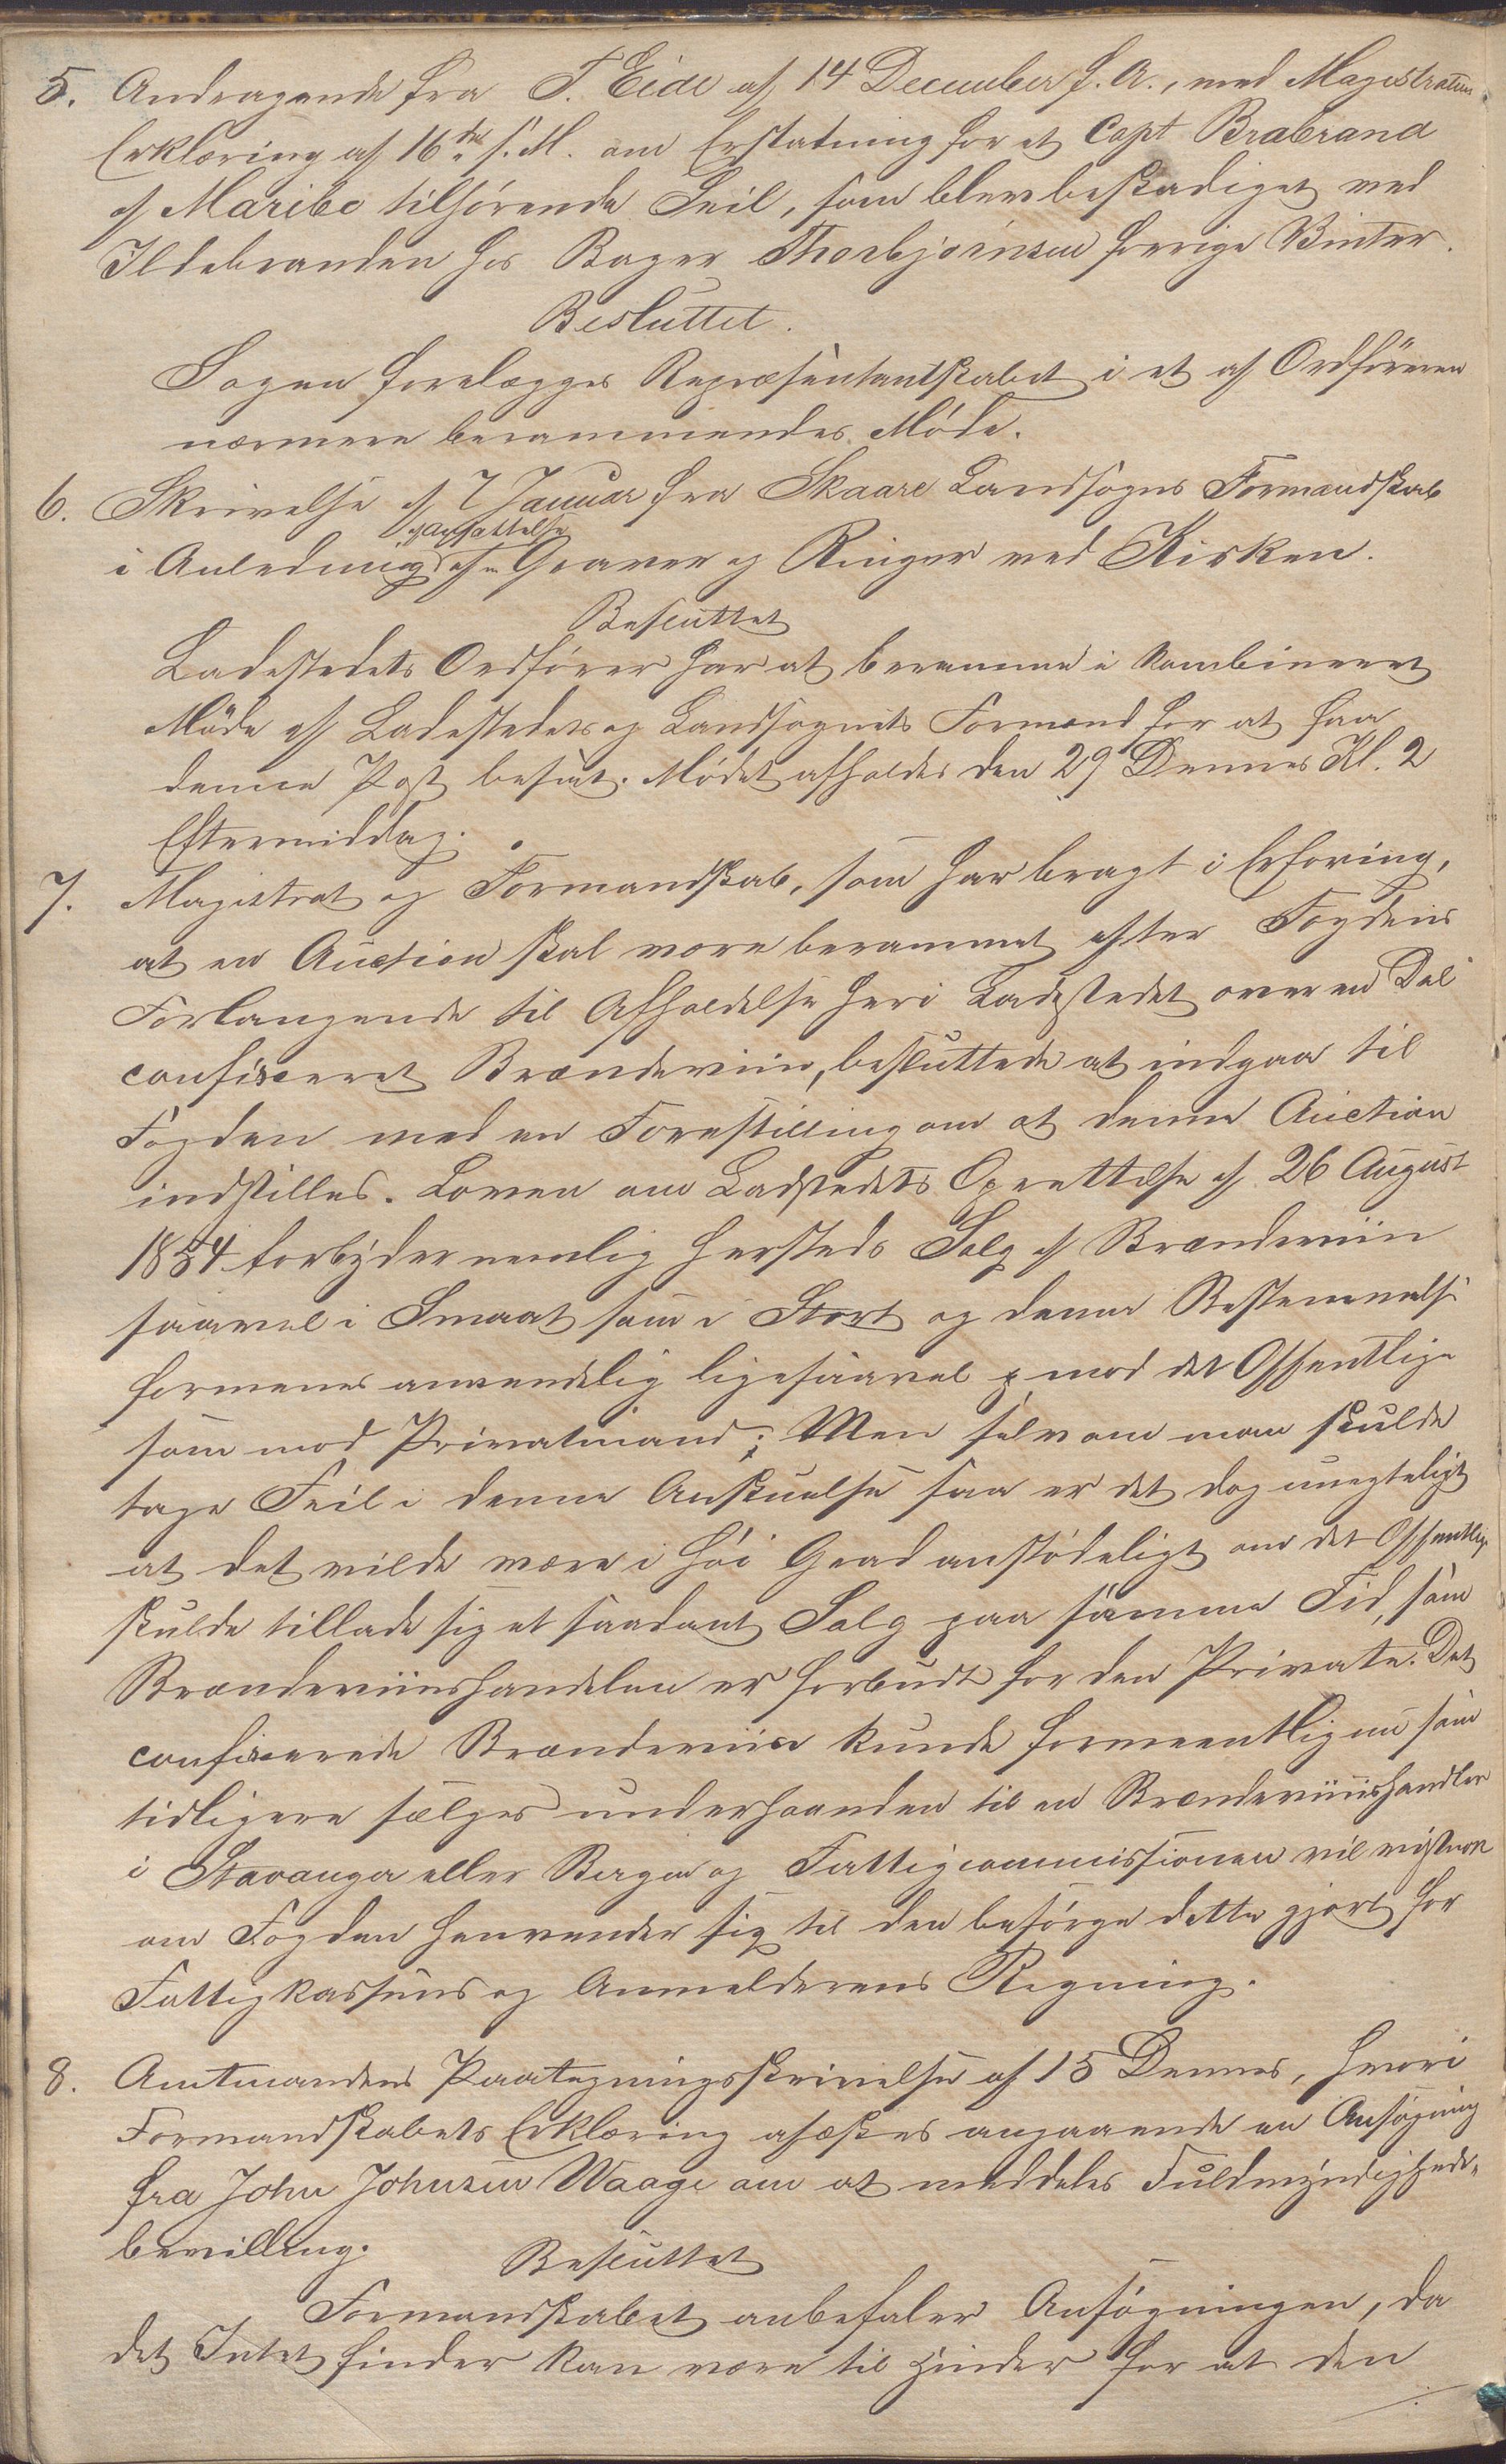 5. Andragende fra T. Eide af 14 December f. A., med Magistratens
Erklæring af 16de s. M. om Erstatning for et Capt Brabrand
af Maribo tilhørende Seil, som blev beskadiget ved
Ildebranden hos Bager Thorbjørnsen forrige Vinter.
Besluttet.
Sagen forelægges Repræsentantskabet i et af Ordføreren
nærmere berammendes Møde.
6. Skrivelse af 7 Januar fra Skaare Landsogns Formandskab
ansættelse
i Anledning af Graver og Ringer ved Kirken.
Besluttet
Ladestedets Ordfører har at beramme i kombineret
Møde af Ladestedets og Landsognets Formænd for at faa
denne Post besat. Mødet afholdes den 29 Dennes Kl. 2
Eftermiddag.
7. Magistrat og Formandskab, som har bragt i Erfaring,
at en Auction skal være berammet efter Fogdens
Forlangende til Afholdelse her i Ladestedet over en Del
confisceret Brændeviin, besluttede at indgaa til
Fogden med en Forestilling om at denne Auction
indstilles. Loven om Ladstedets Oprettelse af 26 August
1854 forbyder nemlig hersteds Salg af Brændeviin
saavel i Smaat som i Stort og denne Bestemmelse
formenes anvendelig ligesaavel mod det Offentlige
som mod Privatmand; Men selv om man skulde
tage Feil i denne Anskuelse saa er det dog unegteligt
at det vilde være i høi Grad anstødeligt om det Offentlige
skulde tillade sig et saadant Salg paa samme Tid, som
Brændeviinshandelen er forbudt for den Private. Det
confiscerede Brændeviin kunde formeentlig nu som
tidligere sælges underhaanden til en Brændeviinshandler
i Stavanger eller Bergen og Fattigcommissionen vil vistnok
om Fogden henvender sig til den besørge dette gjort for
Fattigkassens og Anmelderens Regning.
8. Amtmandens Paategningsskrivelse af 15 Dennes, hvori
Formandskabets Erklæring afæskes angaaende en Ansøgning
fra John Johnsen Waage om at meddeles Fuldmyndigheds-
bevilling.
Besluttet
Formandskabet anbefaler Ansøgningen, da
det Intet finder kan være til Hinder for at den